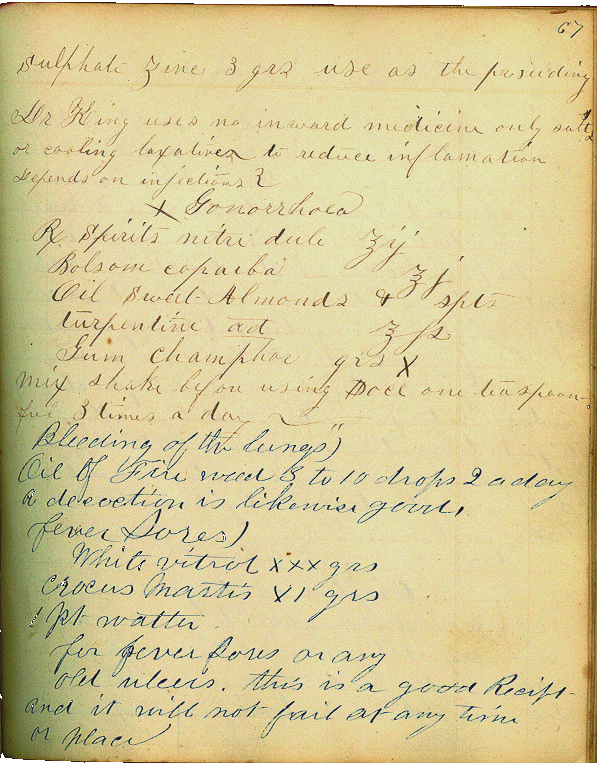 67
Sulphate Zinc 3 grs use as the preseding
Dr King uses no inward medicine only salts
or cooling laxatives to reduce inflamation
Depends on injections
x Gonorrhoea
Rx Spirits nitri dulc ʒij
Bolsom copaiba ʒj
Oil Sweet Almonds & spts
turpentine ad ʒss
Gum Champhor grs x
Mix shake before using Doce one teaspoon-
ful 3 times a day
Bleeding of the lungs)
Oil Of Fire weed 3 to 10 drops 2 a day
a decoction is likewise good,
fever Sores)
White vitrol xxx grs
Crocus Martis XI grs
1 pt watter
for fever Sores or any
old ulcers. this is a good Recipt
and it will not fail at any time
or place